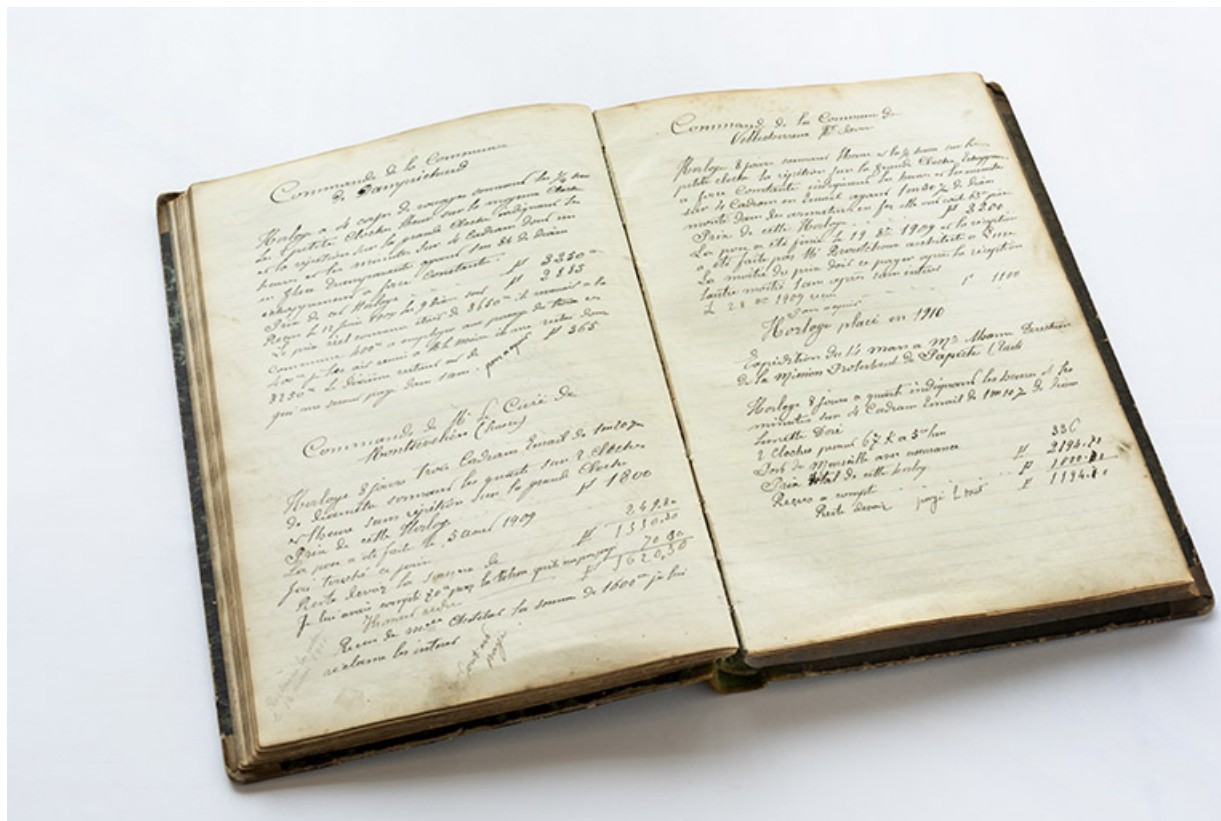 Commande de la Commune
de Damprichard
Horloge a 4 corps de rouages sonnant les 1/4 sur
la petite cloche heure sur la moyenne cloche
et la répétition sur la grande cloche indiquant les
heures et les minutes sur 4 Cadrans dont un
en Glace Dumponent ayant 1m 84 de diam
échappement a force Constante.
Prix de cet Horloge ff 3250
Reçu le 12 juin 1909 les 9 dixm soit ff 2885
Le prix réel convenu était de 3650 il revenait a la
commune 400 a employer au passage du
400 je leur ai remis a Mr le Maire il me reste donc
3250 le dixieme restant est de ff 365
qui me seront payé dans 1 an. payé
Commande de Mr le Curé de
Montlivelière (Suisse)
Horloge 8 jours trois Cadrans Email de 1m207
de diametre sonnant les quarts sur 2 Cloches
et l'heure sans répétition sur la grande Cloche
Prix de cette Horloge ff 1800
La pose a été faite le 5 avril 1909
J'ai touché ce jour 249.20
Reste devoir la somme de ff 1550.80
Je lui avais compté 70 pour la qu'il na pas payé 70 00
ff 1620,80
Reçu de la somme de 1600 je lui
réclame les interets
tout est
payé
Commande de la Commune de
Horloge 8 jours sonnant l'heure et la 1/2 heure sur la
petite cloche la répétition sur la grande Cloche Echappem
a force Constante indiquant les heures et les minutes
sur 4 Cadrans en Email ayant 1m307 de diam
monté dans des armatures en fer elle
Prix de cette Horloge ff 3200
La pose a été finie le 19 1909 et la réception
a été faite par Mr architecte a
La moitié du prix doit ce payer après la réception
lautre moitié 1 an après sans interet
L 28 1909 reçu f 1100
Horloge placé en 1910
Expédition du 14 mars a Mr Direction
de la Mission Protestant de Papeete (Taïti
Horloge 8 jours a quart indiquant les heures et les
minutes sur 4 Cadrans Email de 1m107 de diam
Lunette Doré
2 Cloches pesant 67 K a 5
Port de Marseille avec assurance 336
Prix total de cette horloge ff 2194.
Reçus a compte ff 1000.
Reste devoir payé le tout ff 1194.